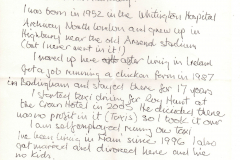 I was born in 1952 in the Whittington Hospital
Archway North London and grew up in
Highbury near the old Arsenal stadium
(but I never went in it!)
I moved up here after living in Ireland
Got a job running a chicken farm in 1987
in Buckingham and stayed there for 17 years
I started taxi driving for Ray Hunt at
the Crown Hotel in 2003. He decided there
was no profit in it (Taxis) so I took it over
I am self employed running one taxi
I've been living in Nam since 1996. I also
got married and divorced here and have
no kids.